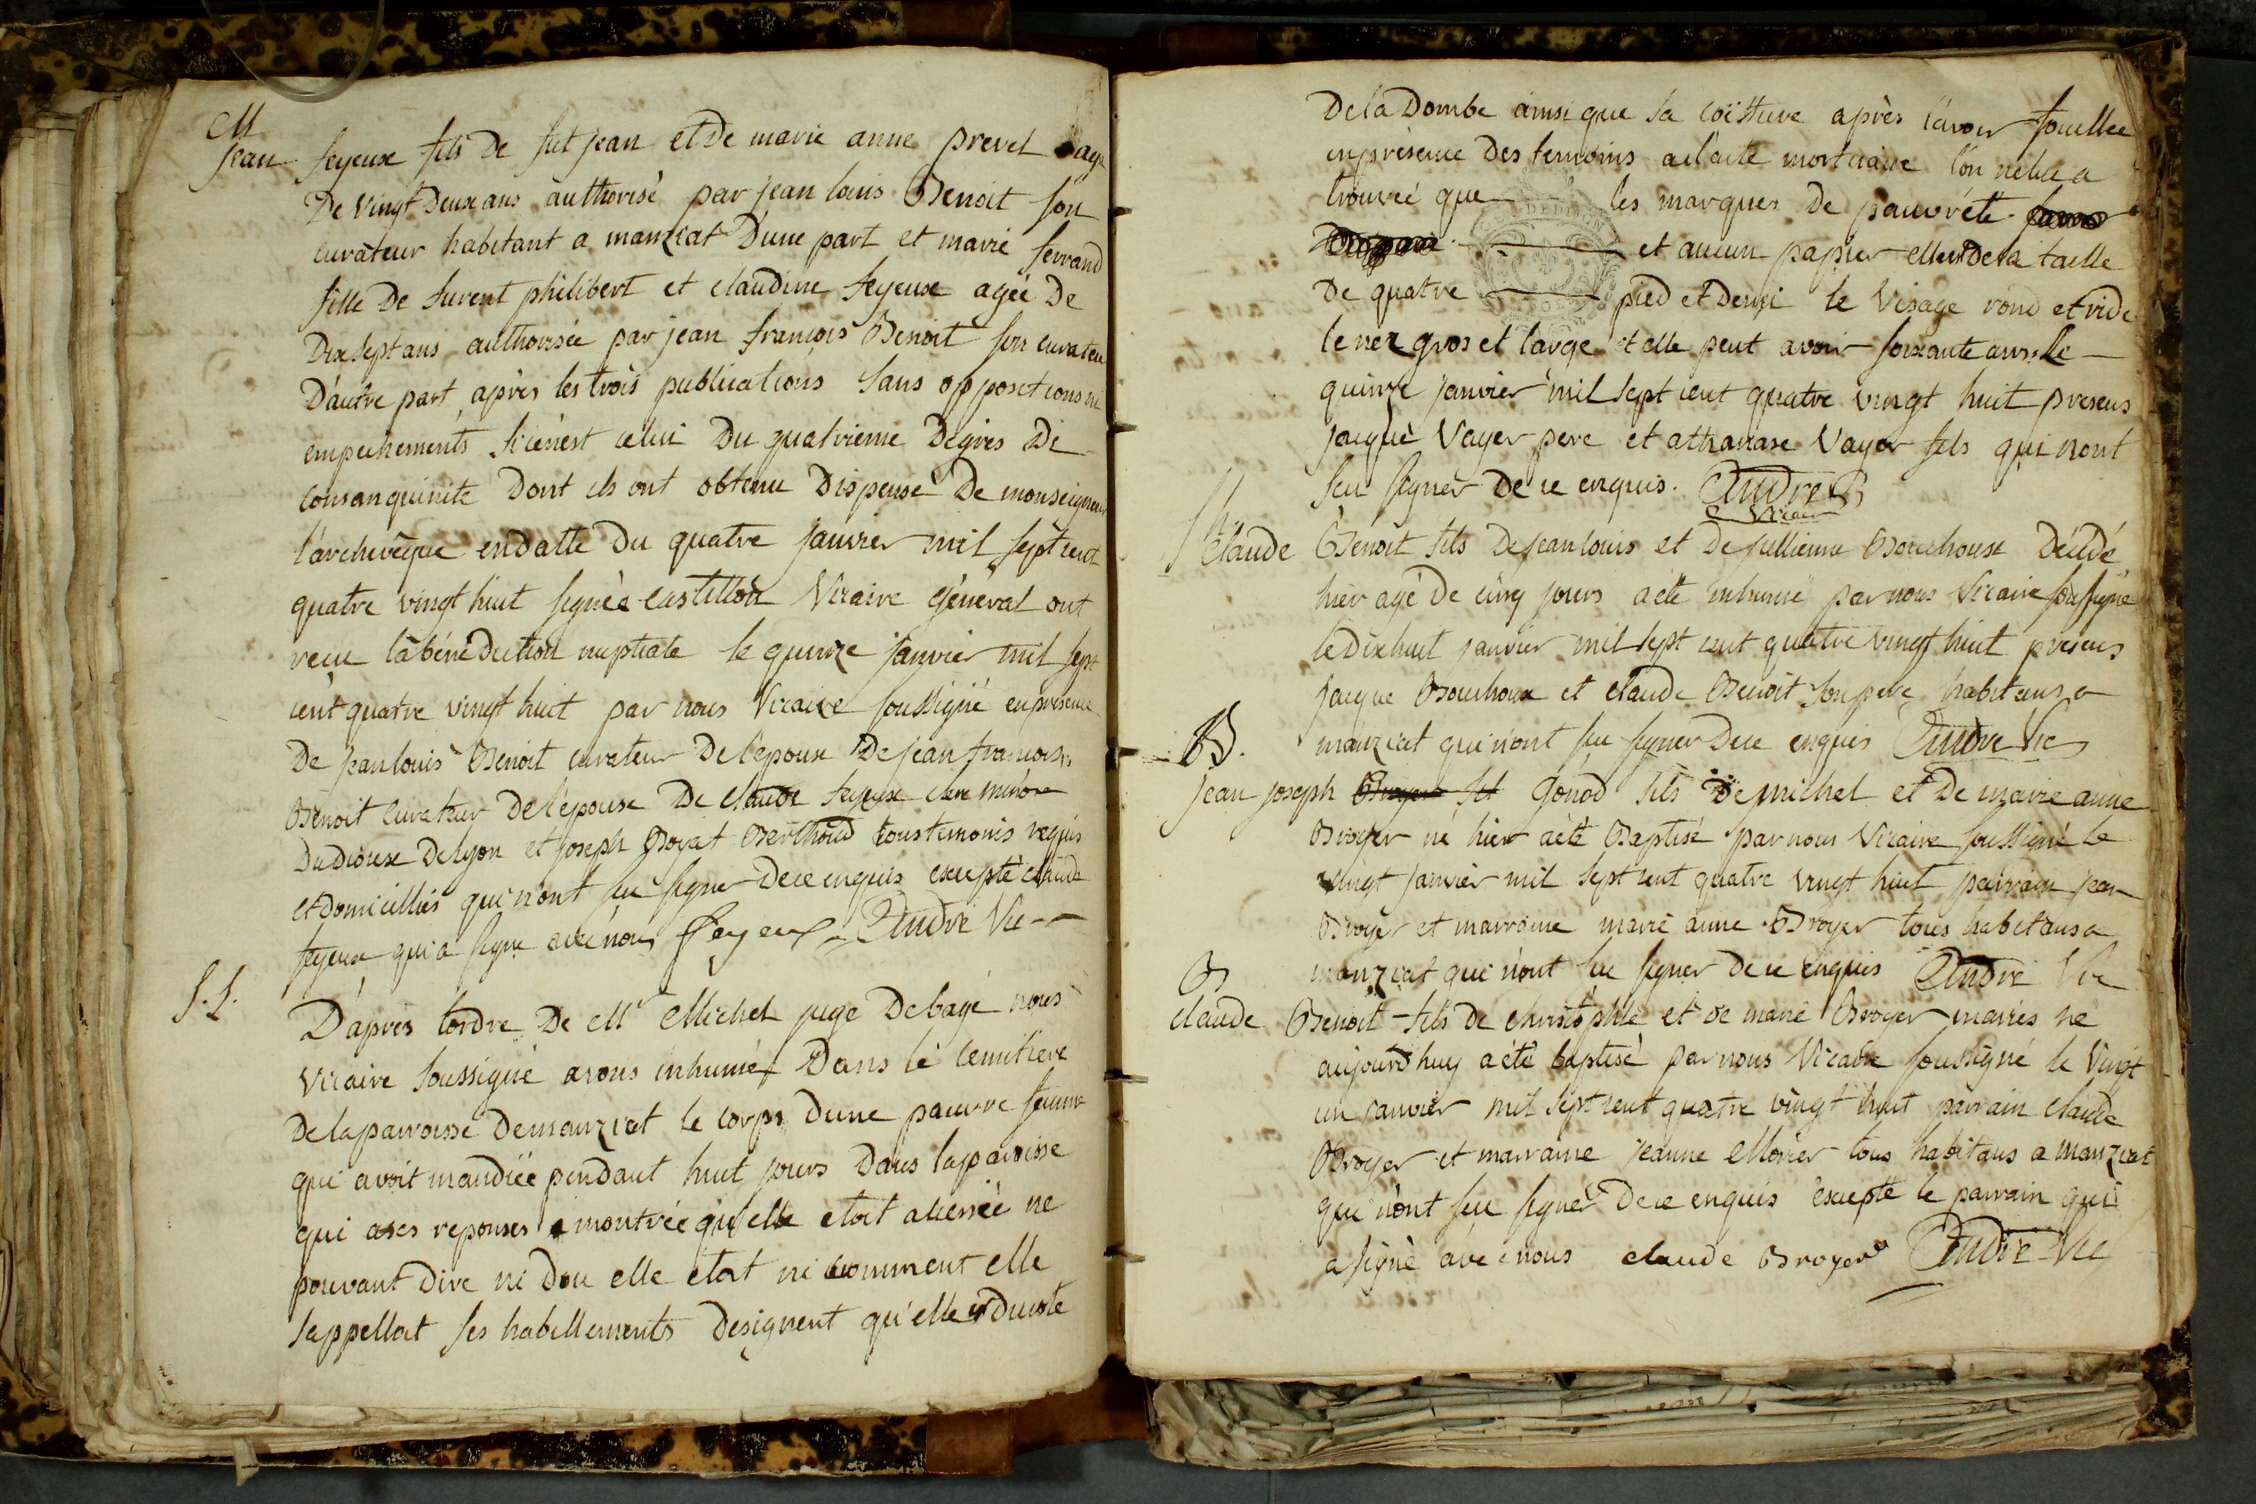 M
Jean feyeux fils de fut jean et de marie anne prevel age
De vingt Deux ans authorisé par jean louis Benoit son
curateur habitant a manziat D'une part et marie ferrand
fille De furent philibert et claudine feyeux agée De
Dixsept ans authorisée par jean françois Benoit son curateur
D'autre part, après les trois publications sans oppositions ni
empechements si cenest celui Du quatrieme Degres De
consanguinite Dont ils ont obtenu Dispense De monseigneur
l'archeveque en datte Du quatre janvier mil sept cent
quatre vingt huit signée castillon Vicaire général ont
recu la bénédiction nuptiale le quinze janvier mil sept
cent quatre vingt huit par nous Vicaire soussigné en presence
De jean louis Benoit curateur De l'epoux De jean francois
Benoit curateur De l'epouse De claude feyeux clerc minore
Du diocese De lyon et joseph Boyat Berthoud tous temoins requis
et domiciliés qui n'ont su signer De ce enquis excepté claude
feyeux qui a signe avec nous feyeux André Vic
S. S.
D'après l'ordre De Mr Michel juge De bagé nous
Vicaire soussigné avons inhumé Dans le cemitiere
De la parroisse De manziat le corps d'une pauvre femme
qui avoit mandiée pendant huit jours Dans la paroisse
qui a ses reponses a montrée qu'elle etoit alienée ne
pouvant Dire ni Dou elle etoit ni comment elle
sappelloit ses habillements designent qu'elle est Du coté
De la Dombe ainsi que sa coëffure après l'avoir fouillée
en présence Des temoins a l'acte mortuaire l'on ne lui a
trouvée que les marques De pauvréte
et aucun papier elle est De la taille
De quatre pied et Demi le Visage rond et ride
le nez gros et large et elle peut avoir soixante ans. Le
quinze janvier mil sept cent quatre vingt huit presens
jacque Vayer pere et athanase Vayer fils qui n'ont
seu signer De ce enquis. André
Vicaire
Claude Benoit fils De jean louis et De jullienne Bouchoux Décédé
hier agé De cinq jours a été inhumé par nous Vicaire soussigné
le Dixhuit janvier mil sept cent quatre vingt huit presens
jacque Bouchoux et claude Benoit son pere habitans a
manziat qui n'ont su signer De ce enquis André Vic
B.
jean joseph Gonod fils De michel et De marie anne
Broyer né hier a été Baptisé par nous Vicaire soussigné le
vingt janvier mil sept cent quatre vingt huit parrain jean
Broyer et marraine marie anne Broyer tous habitans a
manziat qui n'ont su signer De ce enquis André Vic
B
claude Benoit fils De christophle et De marie Broyer mariés né
aujourd'huy a été baptisé par nous Vicaire soussigné le Vingt
un janvier mil sept cent quatre vingt huit parrain claude
Broyer et marraine jeanne Moirer tous habitans a manziat
qui n'ont su signer De ce enquis excepté le parrain qui
a signé avec nous claude Broyer André Vic